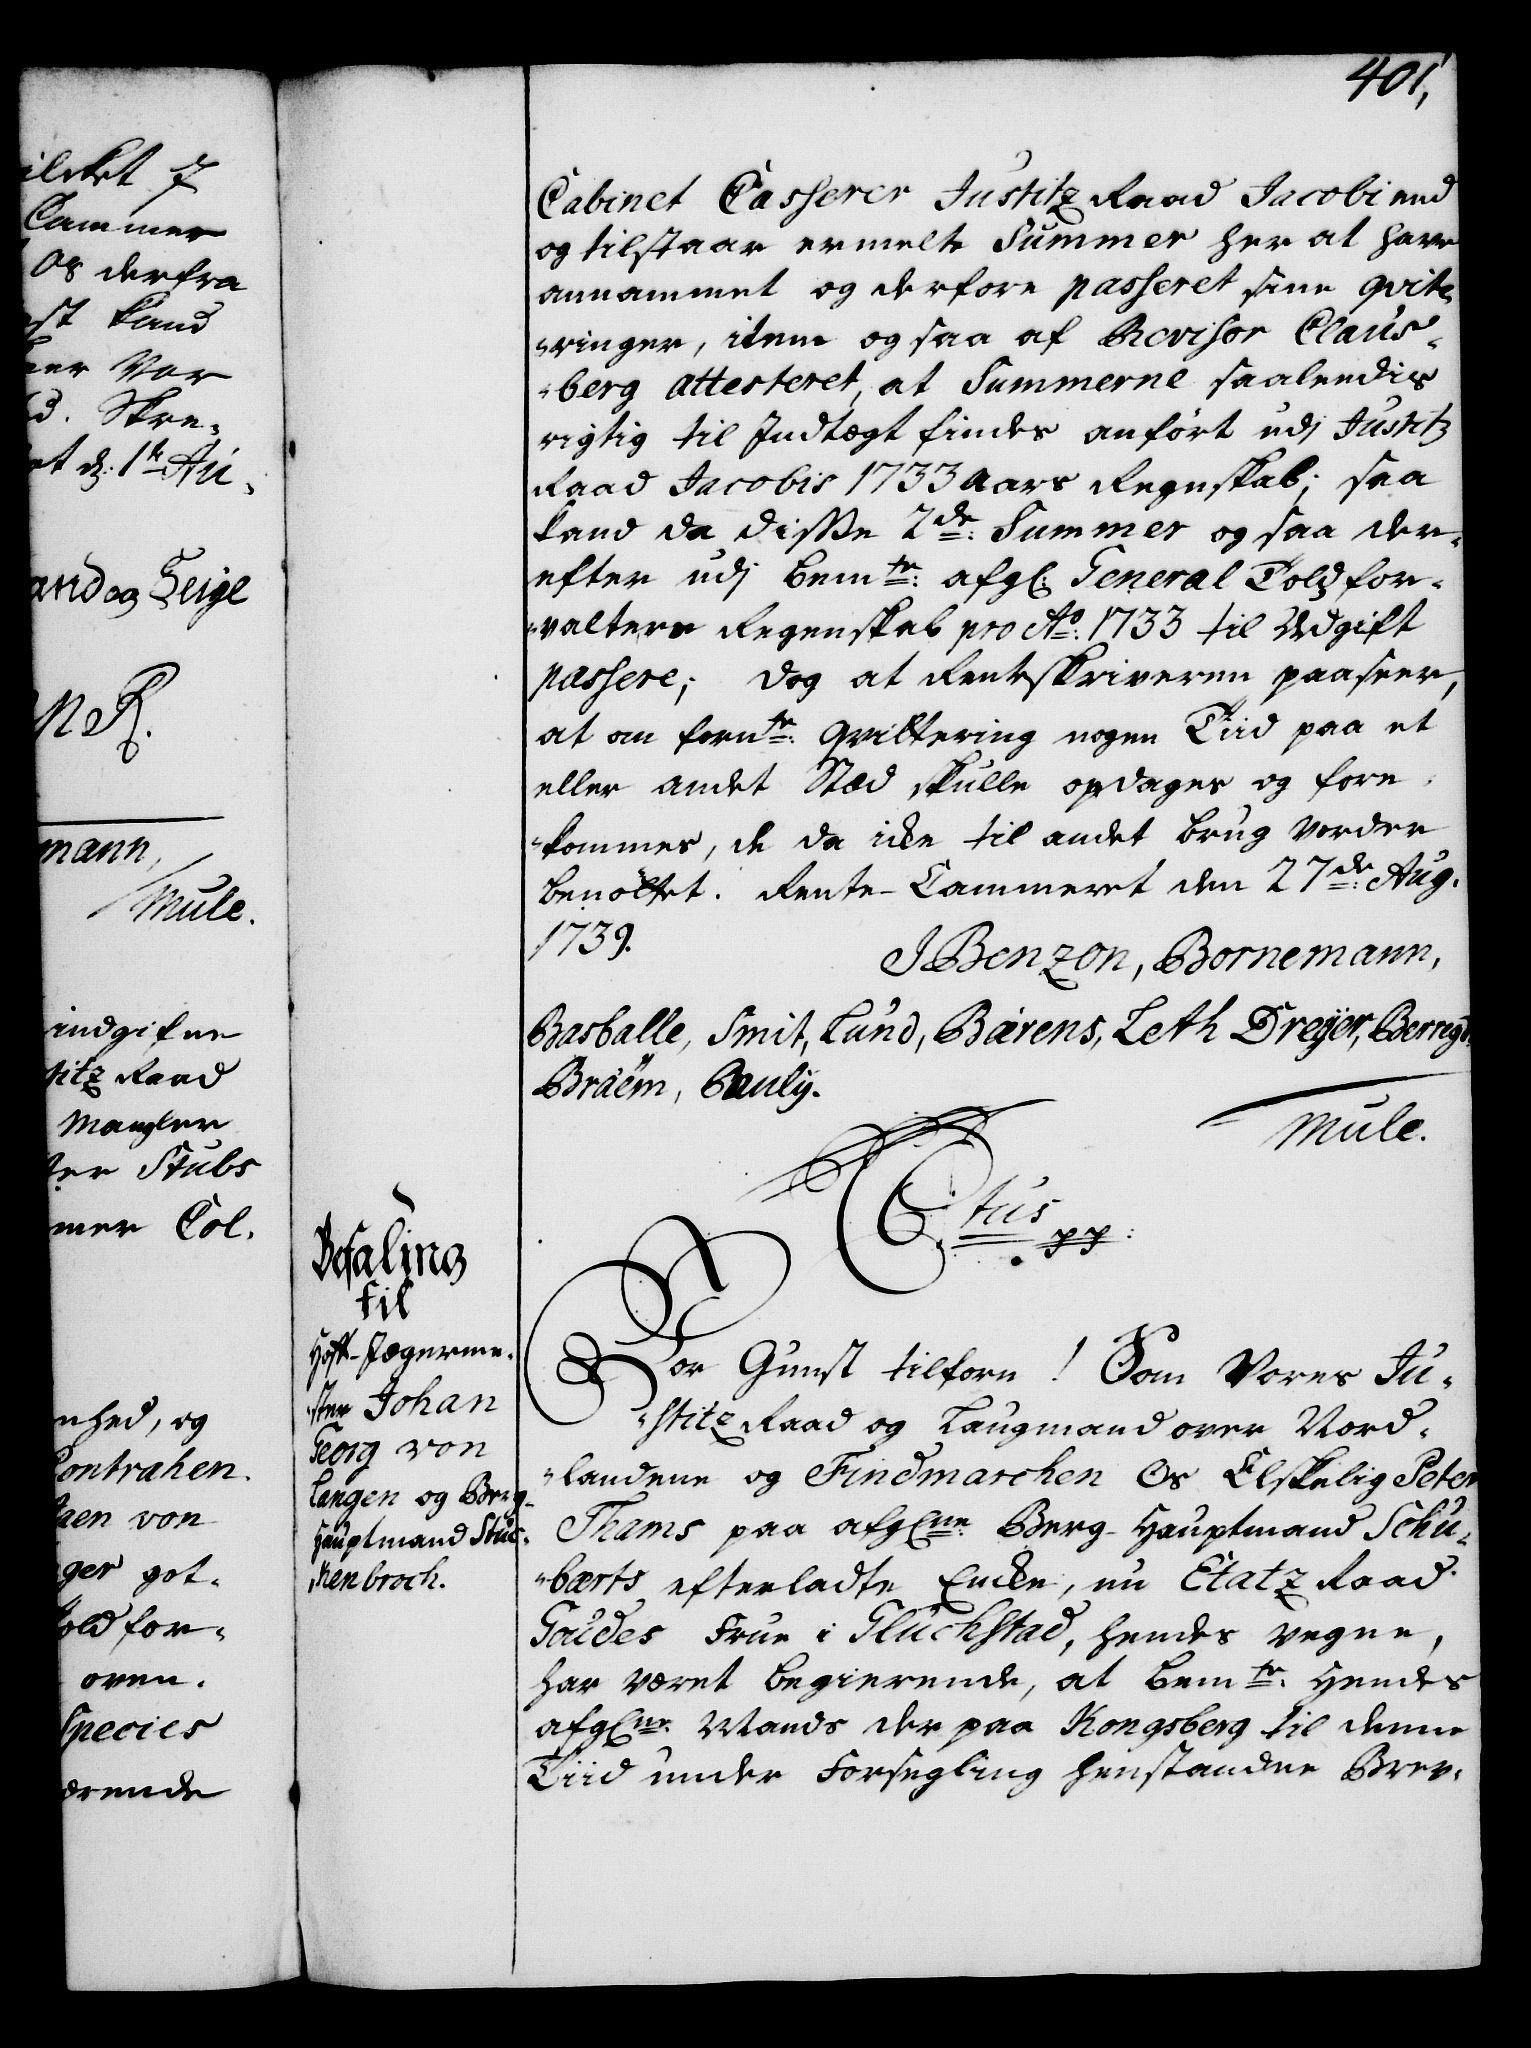 401,
ilcket 7
Cammer
Os derfra
st kand
er Vor
d. Skre,
et d: 1te Au,
and og Seigl
N R.
mann,
Mule.
indgifne
titz Raad
Mangler
ter Stubs
mer Col,
nhed, og
Contrahen,
aen von
ger got,
old for,
oven,
Species
ærende
Cabinet Casserer Justitz Raad Jacobi med
og tilstaar ermelte Summer her at have
annammet og derfore passeret sine qvite,
„ringer, item ogsaa af Revisor Claus,
„berg attesteret, at Summerne saaledis
rigtig til Indtægt findes anført udj Justitz
Raad Jacobis 1733 aars Regnskab; saa
kand da disse 2de: Summer ogsaa der,
efter udj bemte: afgl: General Toldfor,
„valters Regenskab pro Ao: 1733 til Udgift
passere; dog at Rentskriveren paaseer,
at om fornte: qvittering nogen Tiid paa et
eller andet Stæd skulle opdages og fore,
„kommes, de da icke til andet brug vorder
benøttet. Rente-Cammeret den 27de: Aug.
1739.
J Benzon, Bornemann,
Basballe, Smit, Lund, Bärens, Leth Dreyer, Berregd.
Bräëm, Pauly.
Mule.
C. 6tus pp:
Befaling
til
Hoff-Jægerme,
„ster Johan
Georg von
Langen og Berg-
Hauptmand Stuc,
„kenbroch.
Vor Gunst tilforn! Som Vores Ju,
„stitz Raad og Laugmand over Nord,
„landene og Findmarchen Os Elskelig Peter
Thams paa afglne: Berg-Hauptmand Schu,
„bærts efterladte Encke, nu Etatz Raad
Goudes Frue i Glückstad, hendes vegne,
har været begierende, at bemte: Hendes
afglne: Mands der paa Kongsberg til denne
Tiid under Forsegling henstandne Brev,